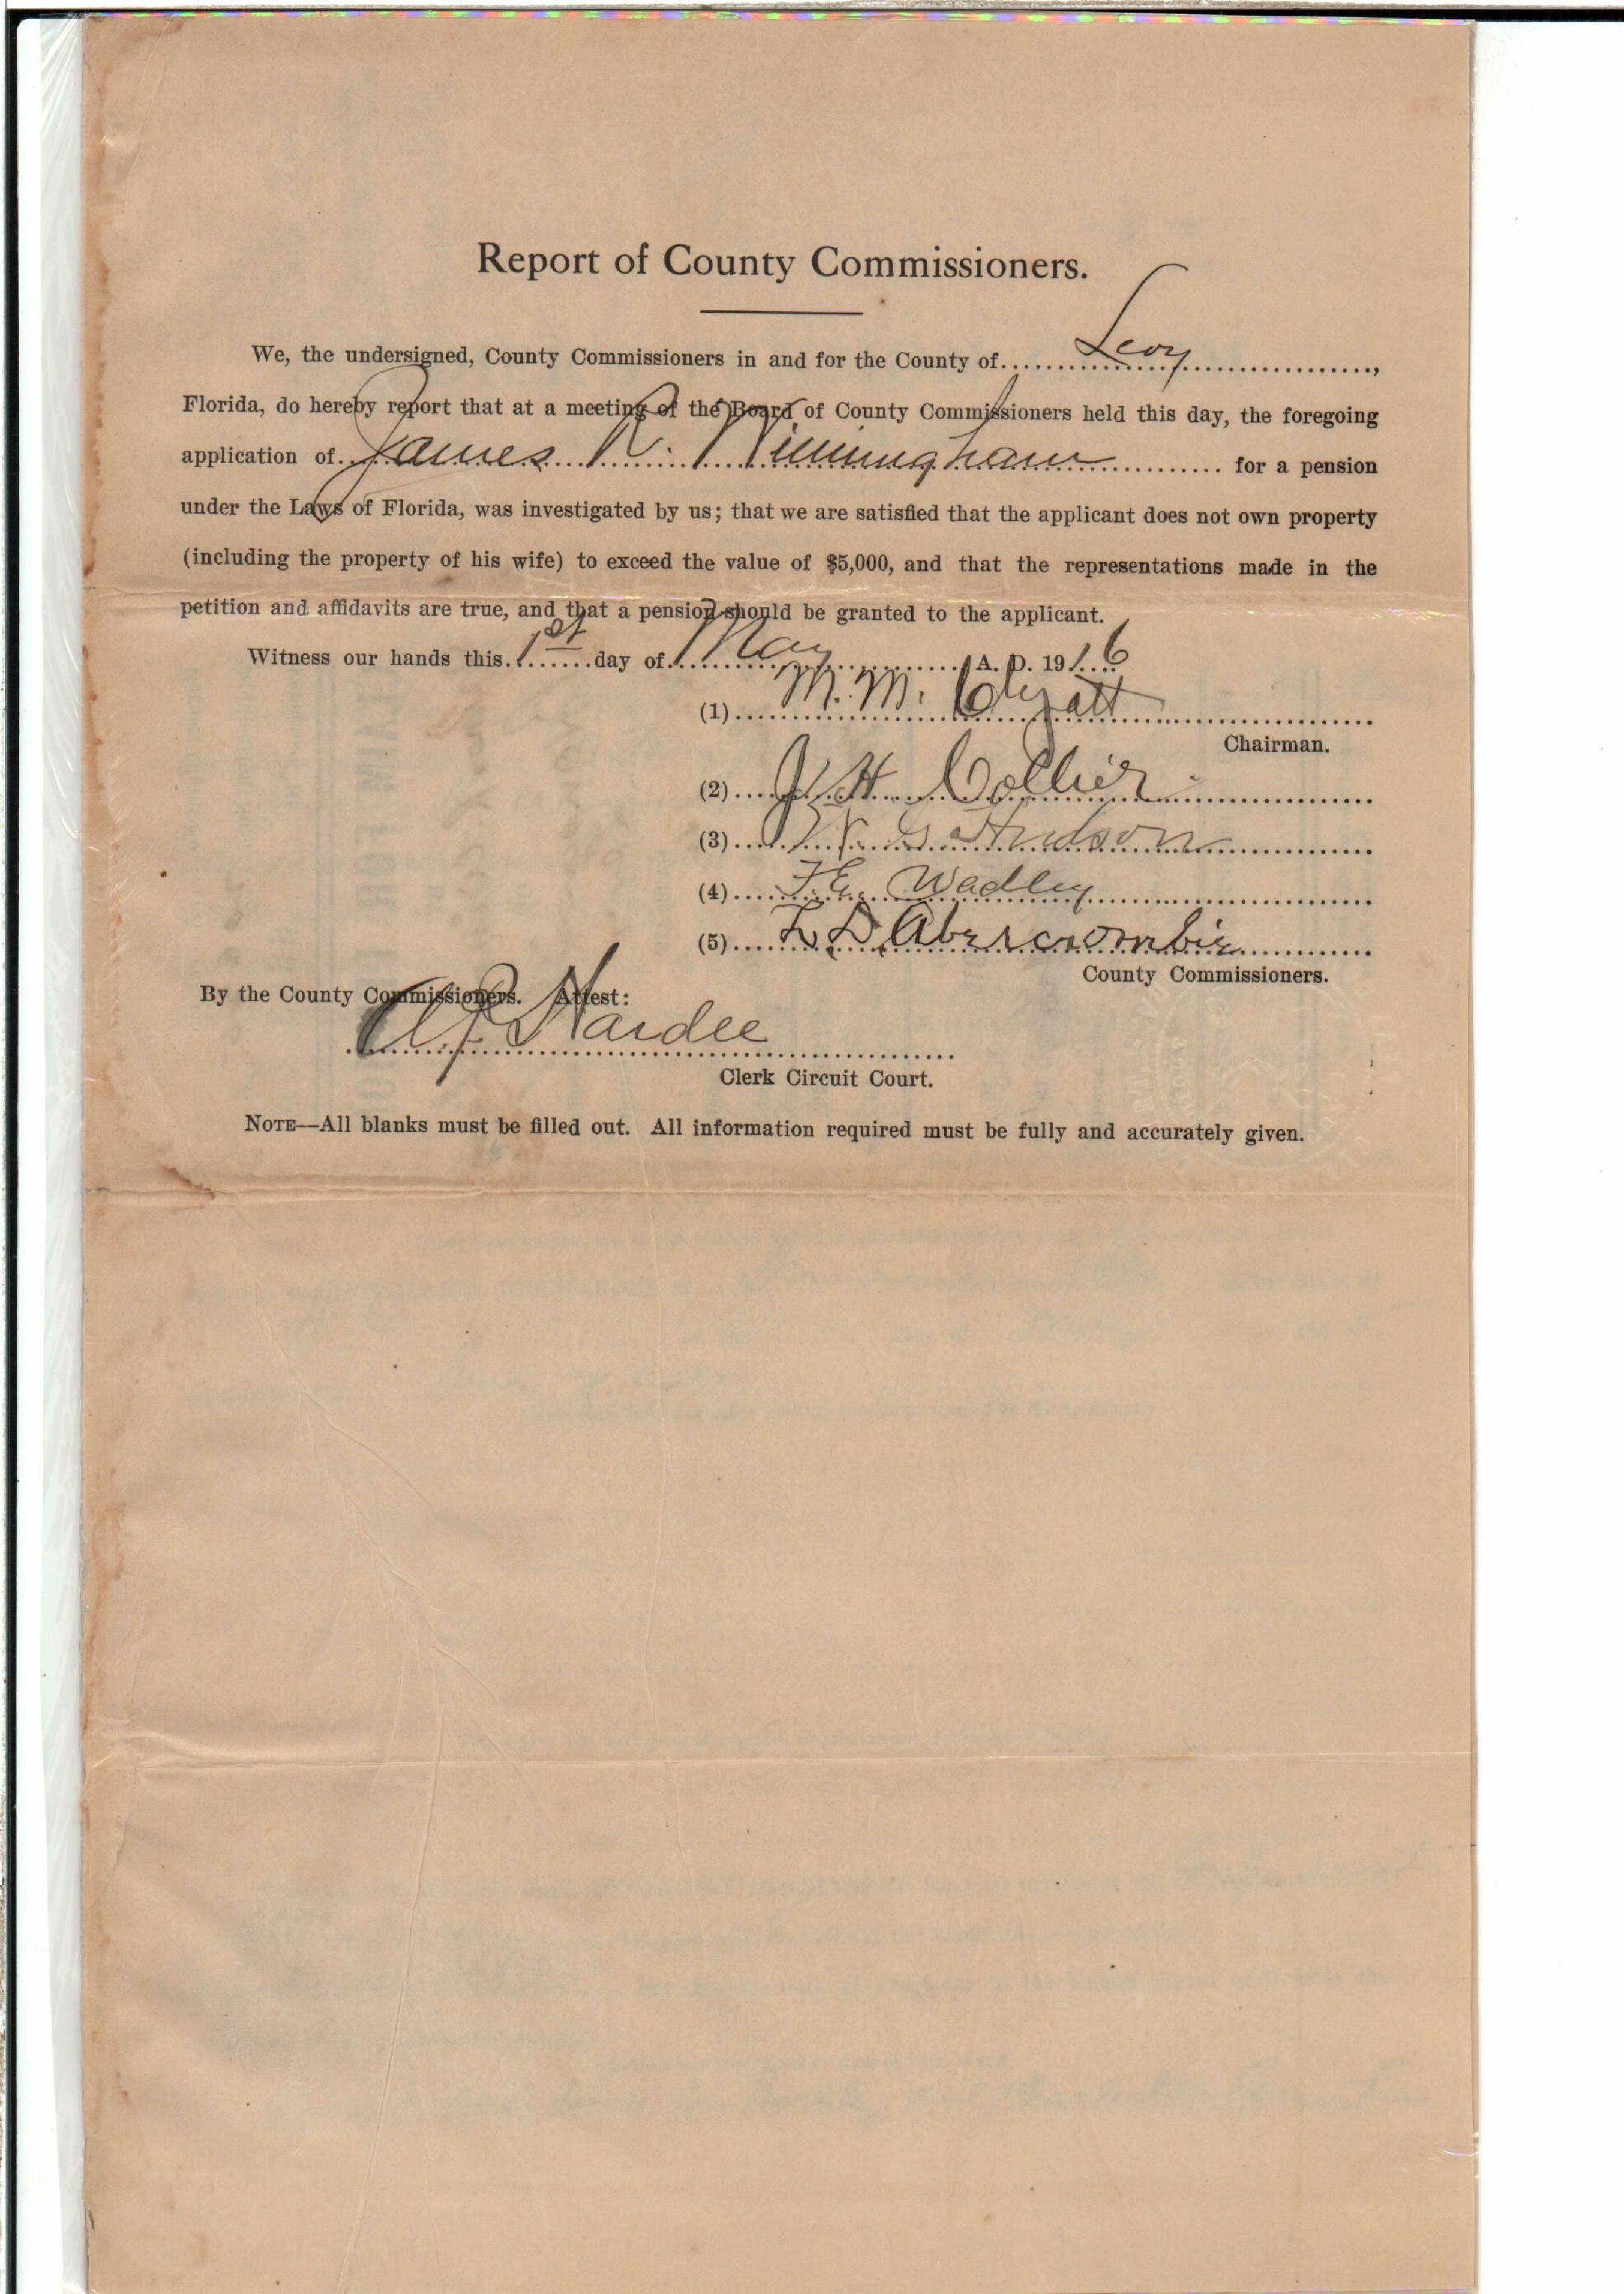 Report of County Commissioners.
We, the undersigned, County Commissioners in and for the County of Levy,
Florida, do hereby report that at a meeting of the Board of County Commissioners held this day, the foregoing
application of James R. for a pension
under the Laws of Florida, was investigated by us; that we are satisfied that the applicant does not own property
(including the property of his wife) to exceed the value of $5,000, and that the representations made in the
petition and affidavits are true, and that a pension should be granted to the applicant.
Witness our hands this 1st day of May A. D. 1916
(1) M. M. Clyatt
Chairman.
(2) J. H. Collier
(3) Hudson
(4) F. E. Wadley
(5) L D Abercrombie
County Commissioners.
By the County Commissioners. Attest:
Hardee
Clerk Circuit Court.
NOTE—All blanks must be filled out. All information required must be fully and accurately given.